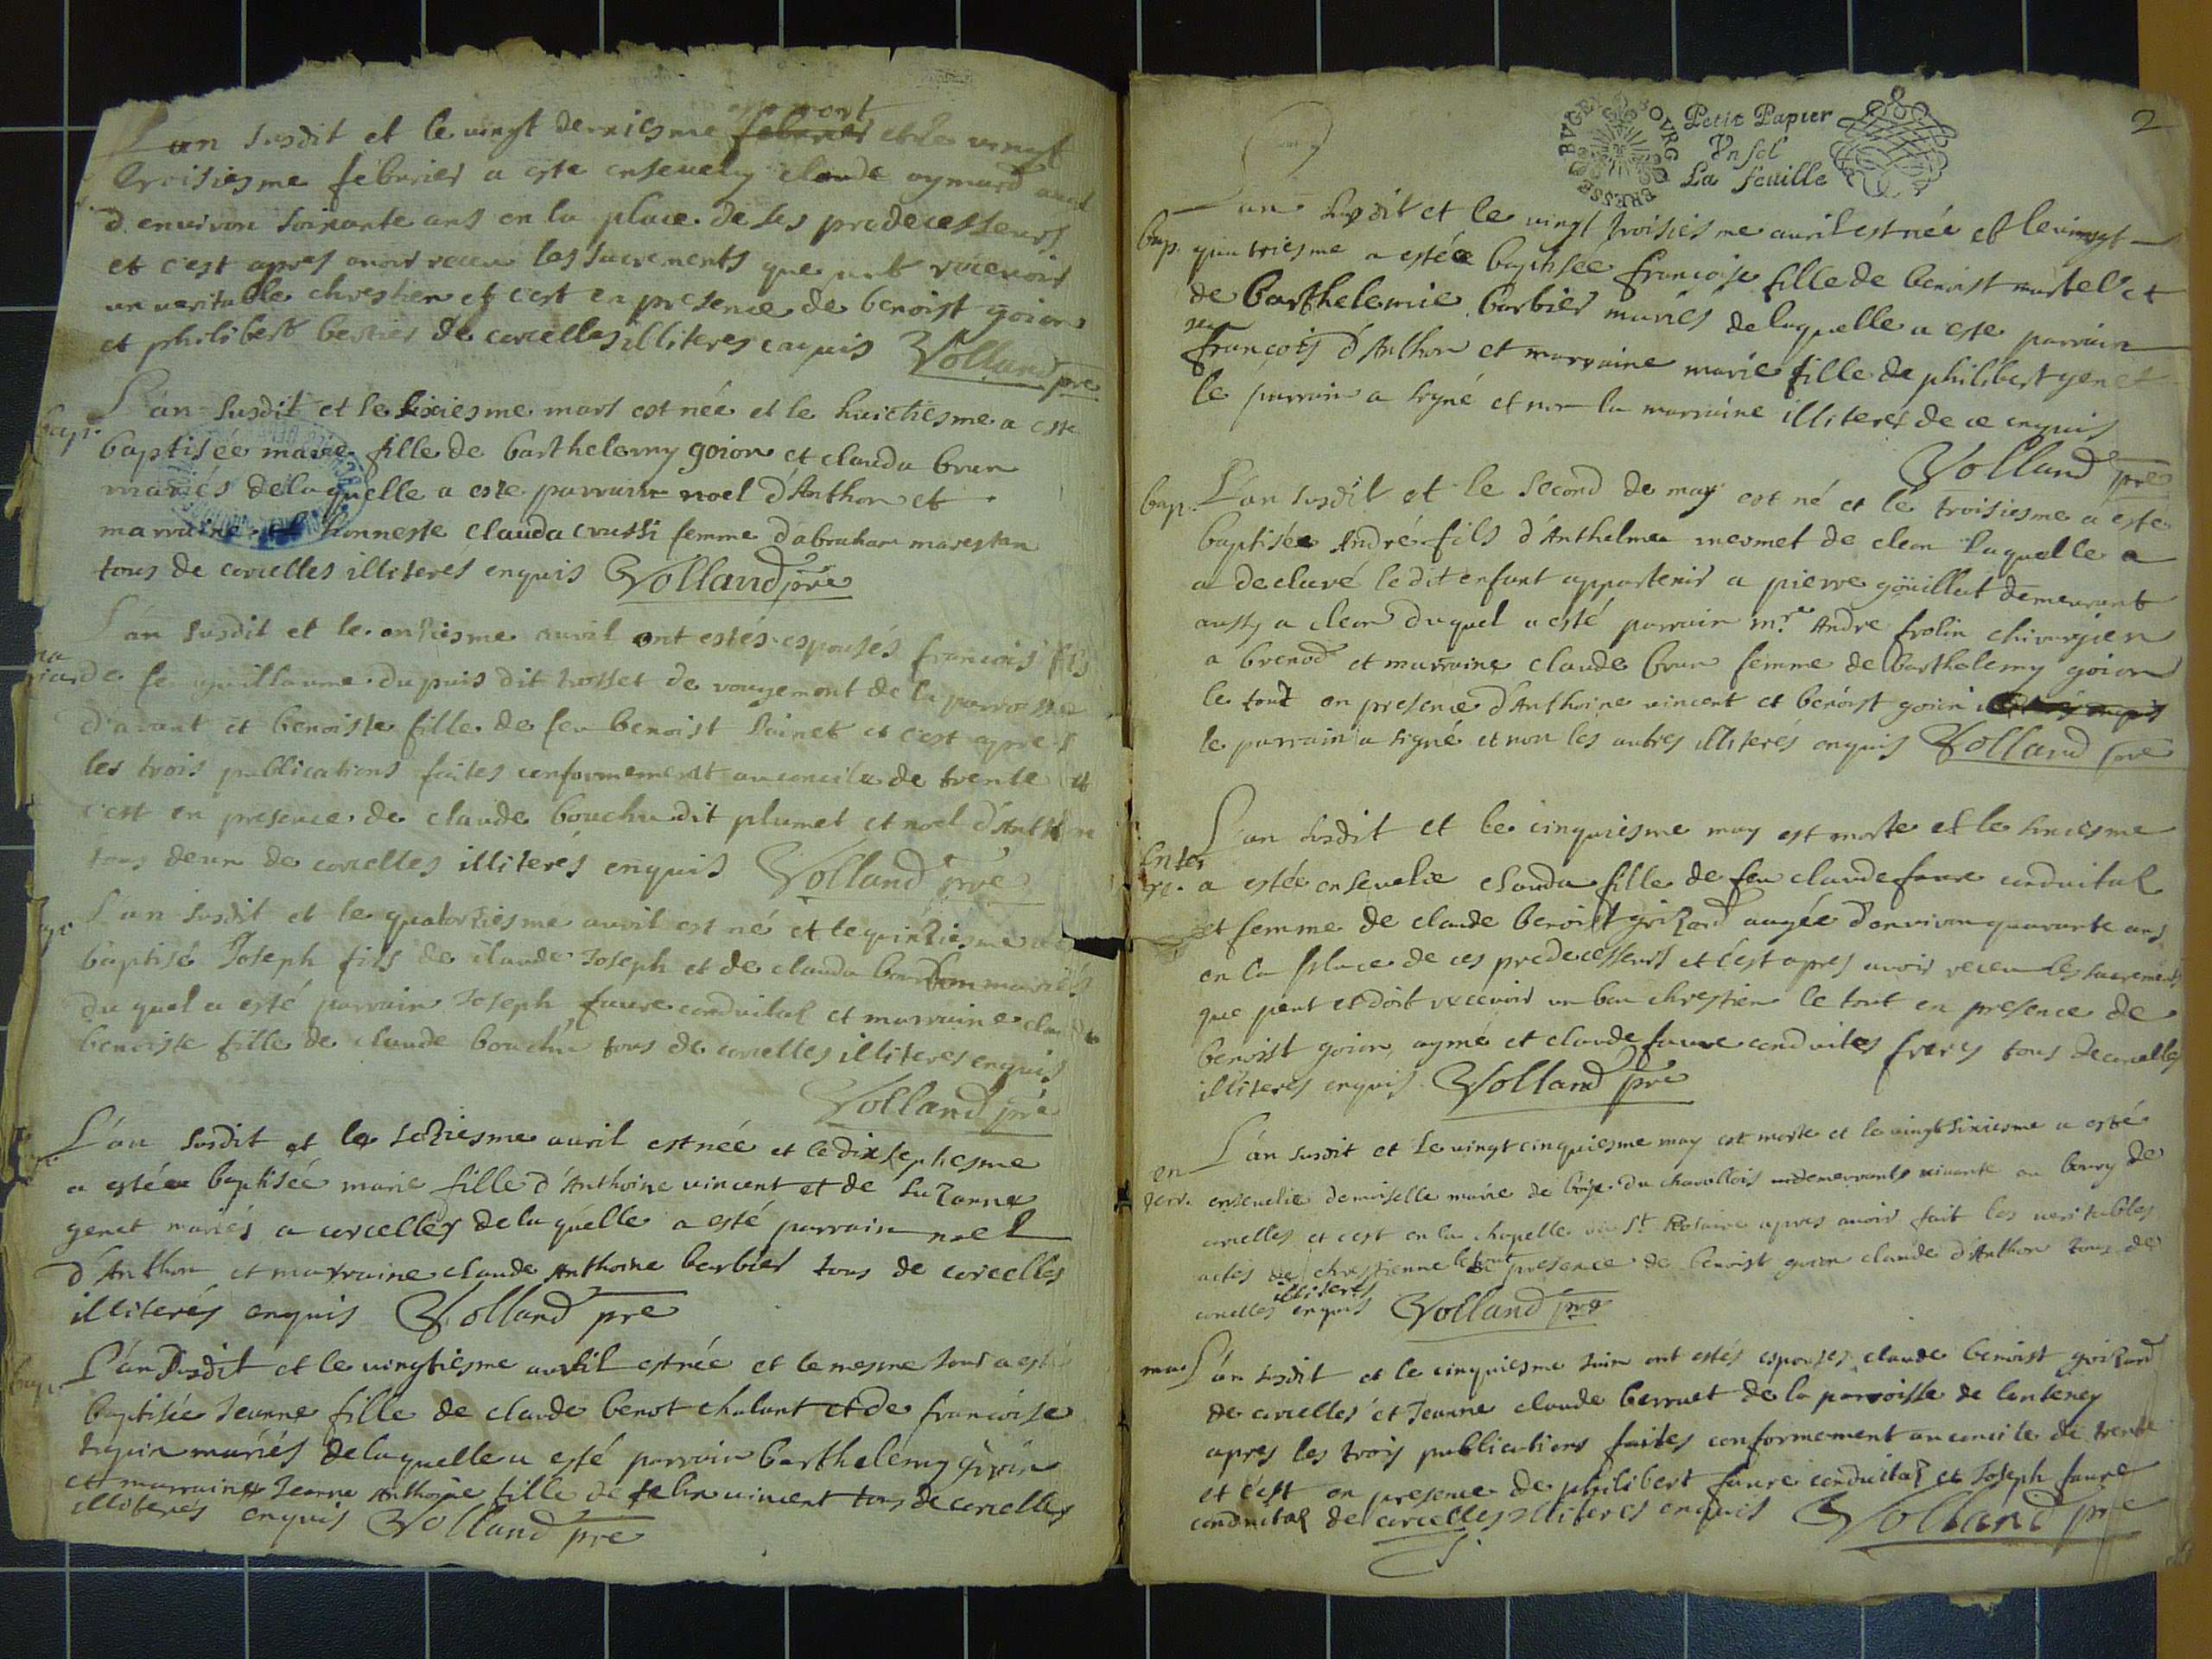 L'an susdit et le vingt deuxiesme est mort et le vingt
troisiesme febvrier a este ensevely claude aymard
d'environ soixante ans en la place de ses predecesseurs
et c'est apres avoir receu les sacrements que recevoir
un veritable chrestien et c'est en presence de benoist goion
et philibert bertier de corcelles illiteres enquis Volland pre
bap. L'an susdit et le sixiesme mars est née et le huictiesme a este
baptisée marie fille de barthelemy goion et clauda brun
mariés de laquelle a este parrain noel d'Anthon et
marraine honneste clauda crussi femme d'abraham marestan
tous de corcelles illiterés enquis Volland pre
L'an susdit et le onziesme avril ont estés espousés francois fils
de feu guillaume dupuis dit trosset de vougemont de la parroisse
d'avant et benoiste fille de feu benoist Poinet et c'est apres
les trois publications faites conformement au concile de trente et
c'est en presence de claude bouchu dit plumet et noel d'Anthon
tous deux de corcelles illiterés enquis Volland pre
L'an susdit et le quatorziesme avril est né et le quinziesme
baptisé Joseph fils de claude Joseph et de clauda mariés
du quel a esté parrain Joseph faure conduital et marraine
benoiste fille de claude bouchu tous de corcelles illiteres enquis
Volland pre
L'an susdit et le seziesme avril est née et le dix septiesme
a estée baptisée marie fille d'Anthoine vincent et de Suzanne
genet mariés a corcelles de laquelle a esté parrain noel
d'Anthon et marraine claude Anthoine barbier tous de corcelles
illiterés enquis Volland pre
bap. L'an susdit et le vingtiesme avril est née et le mesme Jour a esté
baptisée Jeanne fille de claude benot chalant et de francoise
mariés de laquelle a esté parrain barthelemy goion
et marraine Jeanne Anthoine fille de vincent tous de corcelles
illiterés enquis Volland pre
BRESSE BUGEY BOURG
Petit Papier
Un sol
La feuille
2
L'an susdit et le vingt troisiesme avril est née et le vingt
bap. quatriesme a estée baptisée francoise fille de benoist martel et
de barthelemie barbier mariés de laquelle a este parrain
francois d'Anthon et marraine marie fille de philibert genet
le parrain a signé et non la marraine illiteré de ce enquis
Volland pre
bap. L'an susdit et le second de may est né et le troisiesme a este
baptisée André fils d'Anthelma mermet de cleon laquelle a
a declaré ledit enfant appartenir a pierre goüillut demeurant
aussy a cleon duquel a esté parrain mre. Andre frolin chirurgien
a brenod et marraine claude brun femme de barthelemy goion
le tout en presence d'Anthoine vincent et benoist goion
le parrain a signé et non les autres illiterés enquis Volland pre
L'an susdit et le cinquiesme may est morte et le sixiesme
enter
re. a estée ensevelie clauda fille de feu claude faure conduital
et femme de claude benoist grizard augée d'environ quarante ans
en la place de ces predecesseurs et c'est apres avoir receu les sacrements
que peut et doit recevoir un bon chrestien le tout en presence de
benoist goion, aymé et claude faure conduites freres tous de corcelles
illiteres enquis Volland pre
L'an susdit et le vingt cinquiesme may est morte et le vingt sixiesme a esté
en
terr. ensevelie demoiselle marie de du charollois vivante au bourg de
corcelles et c'est en la chapelle du St. Rosaire apres avoir fait les veritables
actes de chrestienne le tout presence de benoist goion claude d'Anthon tous de
corcelles illiterés enquis Volland pre
mar L'an susdit et le cinquiesme Juin ont estés espouses claude benoist grizard
de corcelles et Jeanne claude berruet de la parroisse de lanteney
apres les trois publications faites conformement au concile de trente
et c'est en presence de philibert faure conduital et Joseph faure
conduital de corcelles illiteres enquis Volland pre